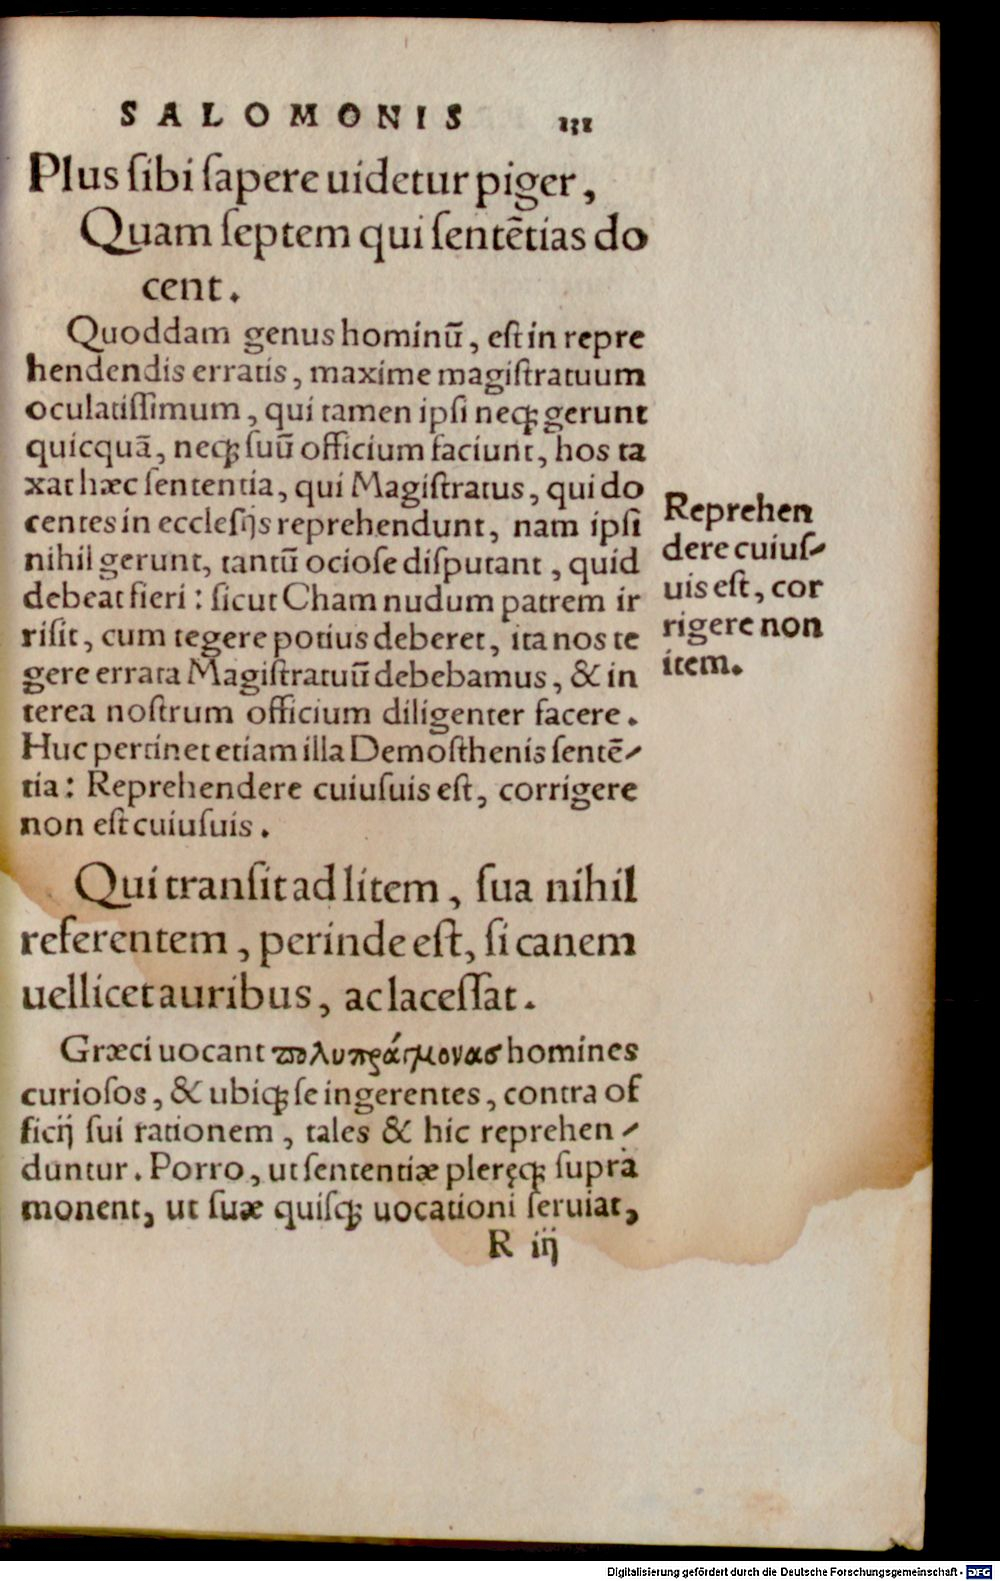 SALOMONIS 131
Plus ſibi ſapere uidetur piger,
Quam ſeptem qui ſentẽtias do
cent.
Quoddam genus hominũ, eſt in repre
hendendis erratis, maxime magiſtratuum
oculatiſſimum, qui tamen ipſi neqꝫ gerunt
quicquã, neqꝫ ſuũ officium faciunt, hos ta
xat hæc ſententia, qui Magiſtratus, qui do
centes in eccleſijs reprehendunt, nam ipſi
nihil gerunt, tantũ ocioſe diſputant, quid
debeat fieri: ſicut Cham nudum patrem ir
riſit, cum tegere potius deberet, ita nos te
gere errata Magiſtratuũ debebamus, & in
terea noſtrum officium diligenter facere.
Huc pertinet etiam illa Demoſthenis ſentẽ-
tia: Reprehendere cuiuſuis eſt, corrigere
non eſt cuiuſuis.
Reprehen
dere cuiuſ-
uis eſt, cor
rigere non
item.
Qui tranſit ad litem, ſua nihil
referentem, perinde eſt, ſi canem
uellicet auribus, ac laceſſat.
Græci uocant πολυπράγμονας homines
curioſos, & ubiqꝫ ſe ingerentes, contra of
ficij ſui rationem, tales & hic reprehen-
duntur. Porro, ut ſententiæ pleręqꝫ ſupra
monent, ut ſuæ quiſqꝫ uocationi ſeruiat,
R iij
Digitalisierung gefördert durch die Deutsche Forschungsgemeinschaft - DFG